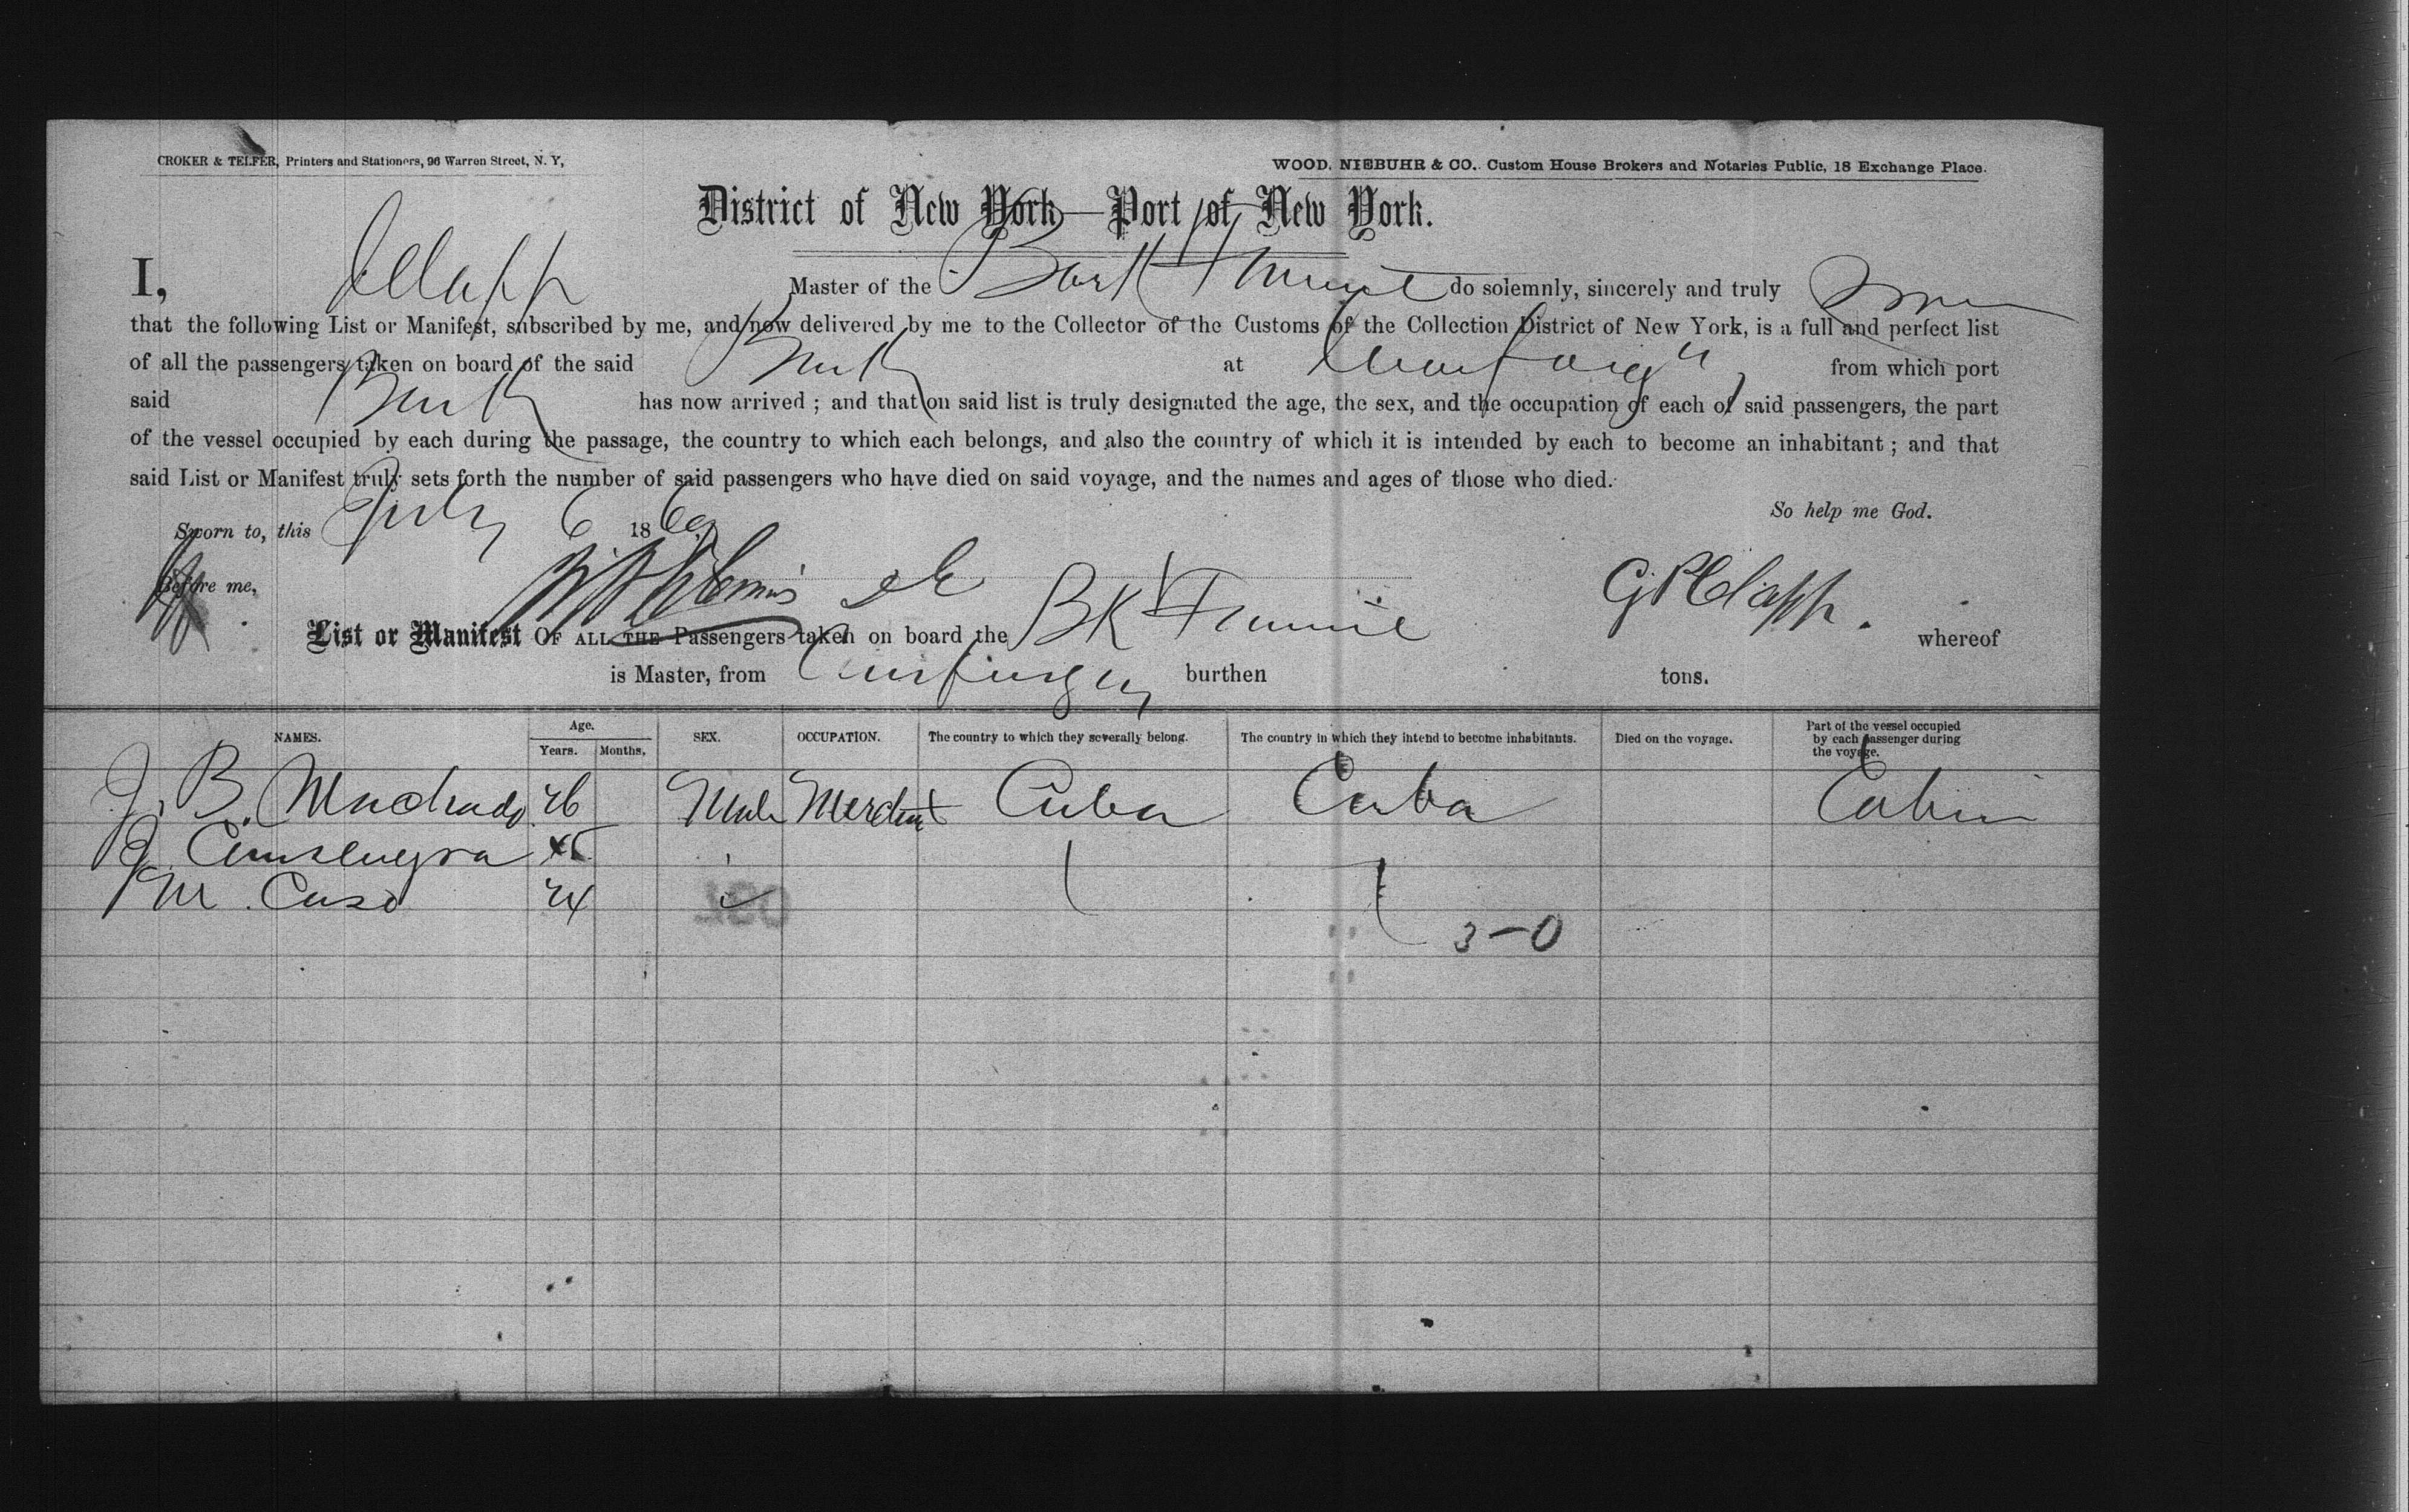 CROKER & TELFER, Printers and Stationers, 96 Warren Street, N. Y,
WOOD, NIEBUHR & CO., Custom House Brokers and Notaries Public, 18 Exchange Place.
District of New York—Port of New York.
I, Clapp Master of the Bark Fannie do solemnly, sincerely and truly swear
that the following List or Manifest, subscribed by me, and now delivered by me to the Collector of the Customs of the Collection District of New York, is a full and perfect list
of all the passengers taken on board of the said Bark at Cienfuegos from which port
said Bark has now arrived ; and that on said list is truly designated the age, the sex, and the occupation of each of said passengers, the part
of the vessel occupied by each during the passage, the country to which each belongs, and also the country of which it is intended by each to become an inhabitant ; and that
said List or Manifest truly sets forth the number of said passengers who have died on said voyage, and the names and ages of those who died.
So help me God.
Sworn to, this July 6 1869
Before me,
G P Clapp.
List or Manifest OF ALL THE Passengers taken on board the BK Fannie whereof
is Master, from Cienfuegos burthen tons.
NAMES. Age. Years. Months, SEX. OCCUPATION. The country to which they severally belong. The country in which they intend to become inhabitants. Died on the voyage. Part of the vessel occupied by each passenger during the voyage.
J. B. Machado 26 Male Merchant Cuba Cuba Cabin
J.
M. Caso 24
3-0